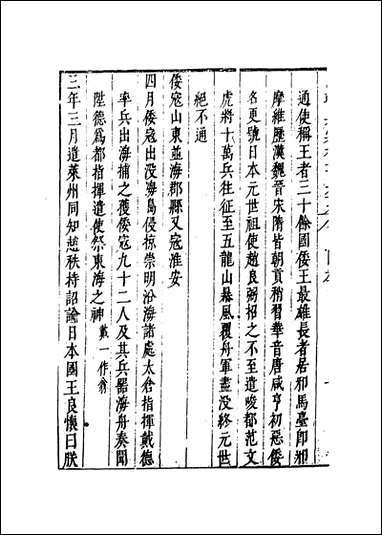 通使稱王者三十餘國倭王最雄長者居邪馬臺即邪
摩維歷漢魏晉宋隋皆朝貢稍習華音唐咸亨初惡倭
名更號日本元世祖使趙良弼招之不至遣唆都范文
虎將十萬兵往征至五龍山暴風覆舟軍盡没終元世
絕不通
倭寇山東並海郡縣又寇淮安
四月倭寇出没海島侵掠崇明沿海諸處太倉指揮戴德
率兵出海捕之獲倭寇九十二人及其兵器海舟奏聞
陞德為都指揮遣使祭東海之神戴一作翁
三年三月遣萊州同知趙秩持詔諭日本國王良懷曰朕